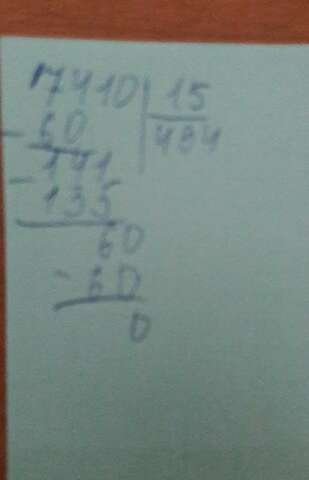 7410 15
- 60 494
- 141
135
60
- 60
0